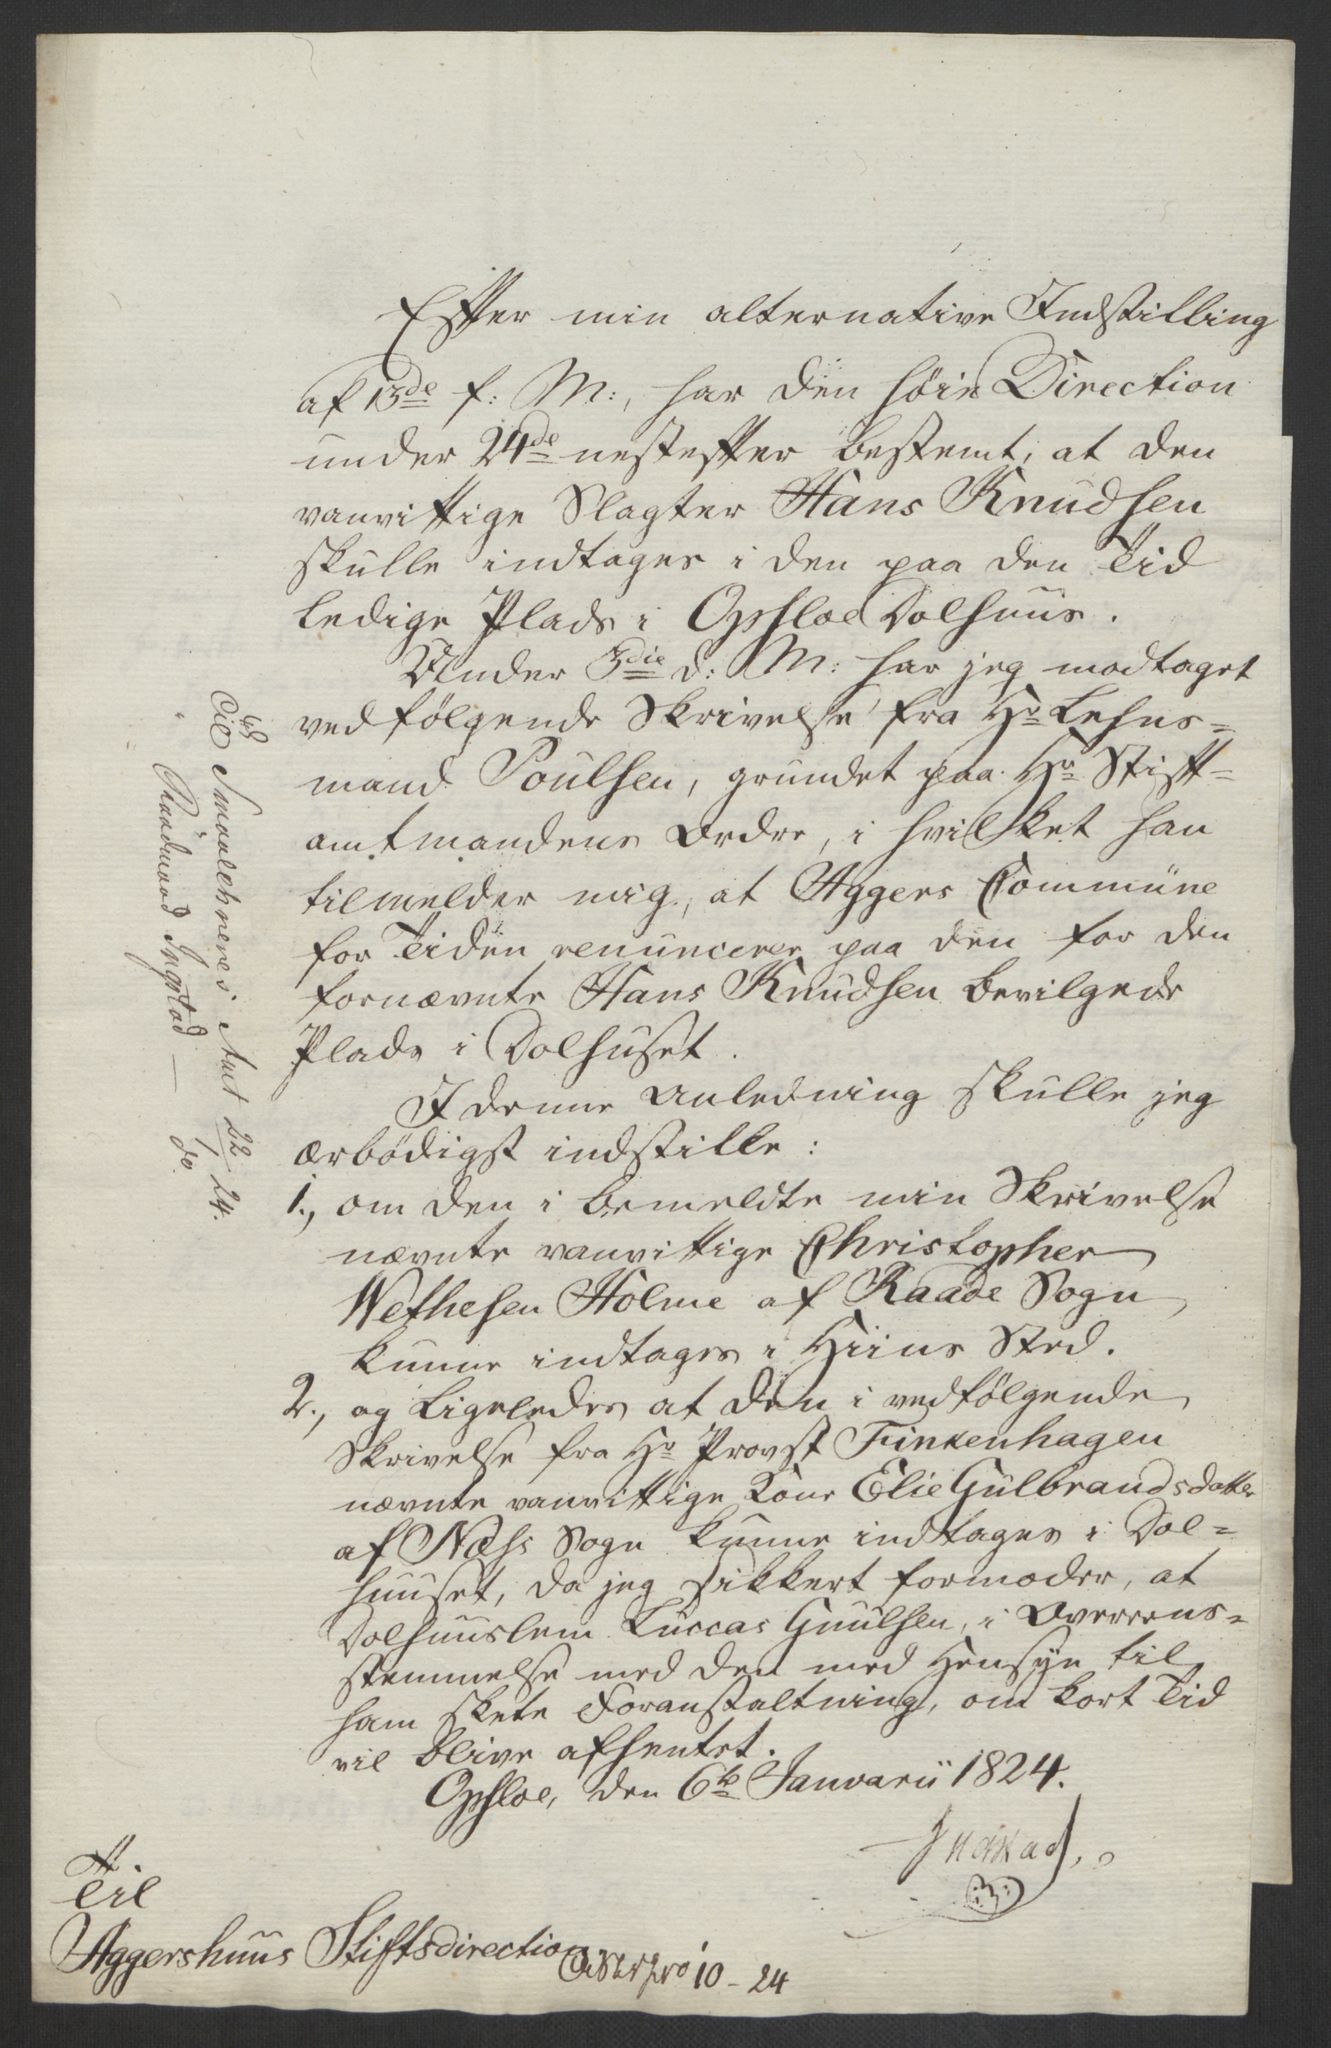 Efter min alternative Indstilling
af 13de f: M:, har den høie Direction
under 24de nestefter bestemt, at den
vanvittige Slagter Hans Knudsen
skulle indtages i den paa den Tid
ledige Plads i Opsloe Dolhuus.
Under 3die d: M: har jeg modtaget
vedfølgende Skrivelse fra Hr Lehns=
mand Poulsen, grundet paa Hr Stift=
amtmandens Ordre, i hvilket han
tilmelder mig, at Aggers Commüne
for Tiden renuncerer paa den for den
fornævnte Hans Knudsen bevilgede
Plads i Dolhuset.
I denne Anledning skulle jeg
ærbödigst indstille:
1., om den i bemeldte min Skrivelse
nævnte vanvittige Christopher
Wethesen Holme af Raade Sogn
kunne indtages i Hiins Sted.
2., og ligeledes at den i vedfølgende
Skrivelse fra Hr Provst Finkenhagen
nævnte vanvittige Kone Elie Gulbrandsdatter
af Næhs Sogn kunne indtages i Dol=
huuset, da jeg sikkert formoder, at
Dolhuuslem Luccas Guulsen, i Overeens=
stemmelse med den med Hensyn til
ham skete Foranstaltning, om kort Tid
vil blive afhentet.
Opsloe, den 6te Januarii 1824.
Ingstad
Til
Aggershuus Stiftsdirection
10-24
Til Smaalehnenes Amt 22/1 24.
" Raadmand Ingstad — do.